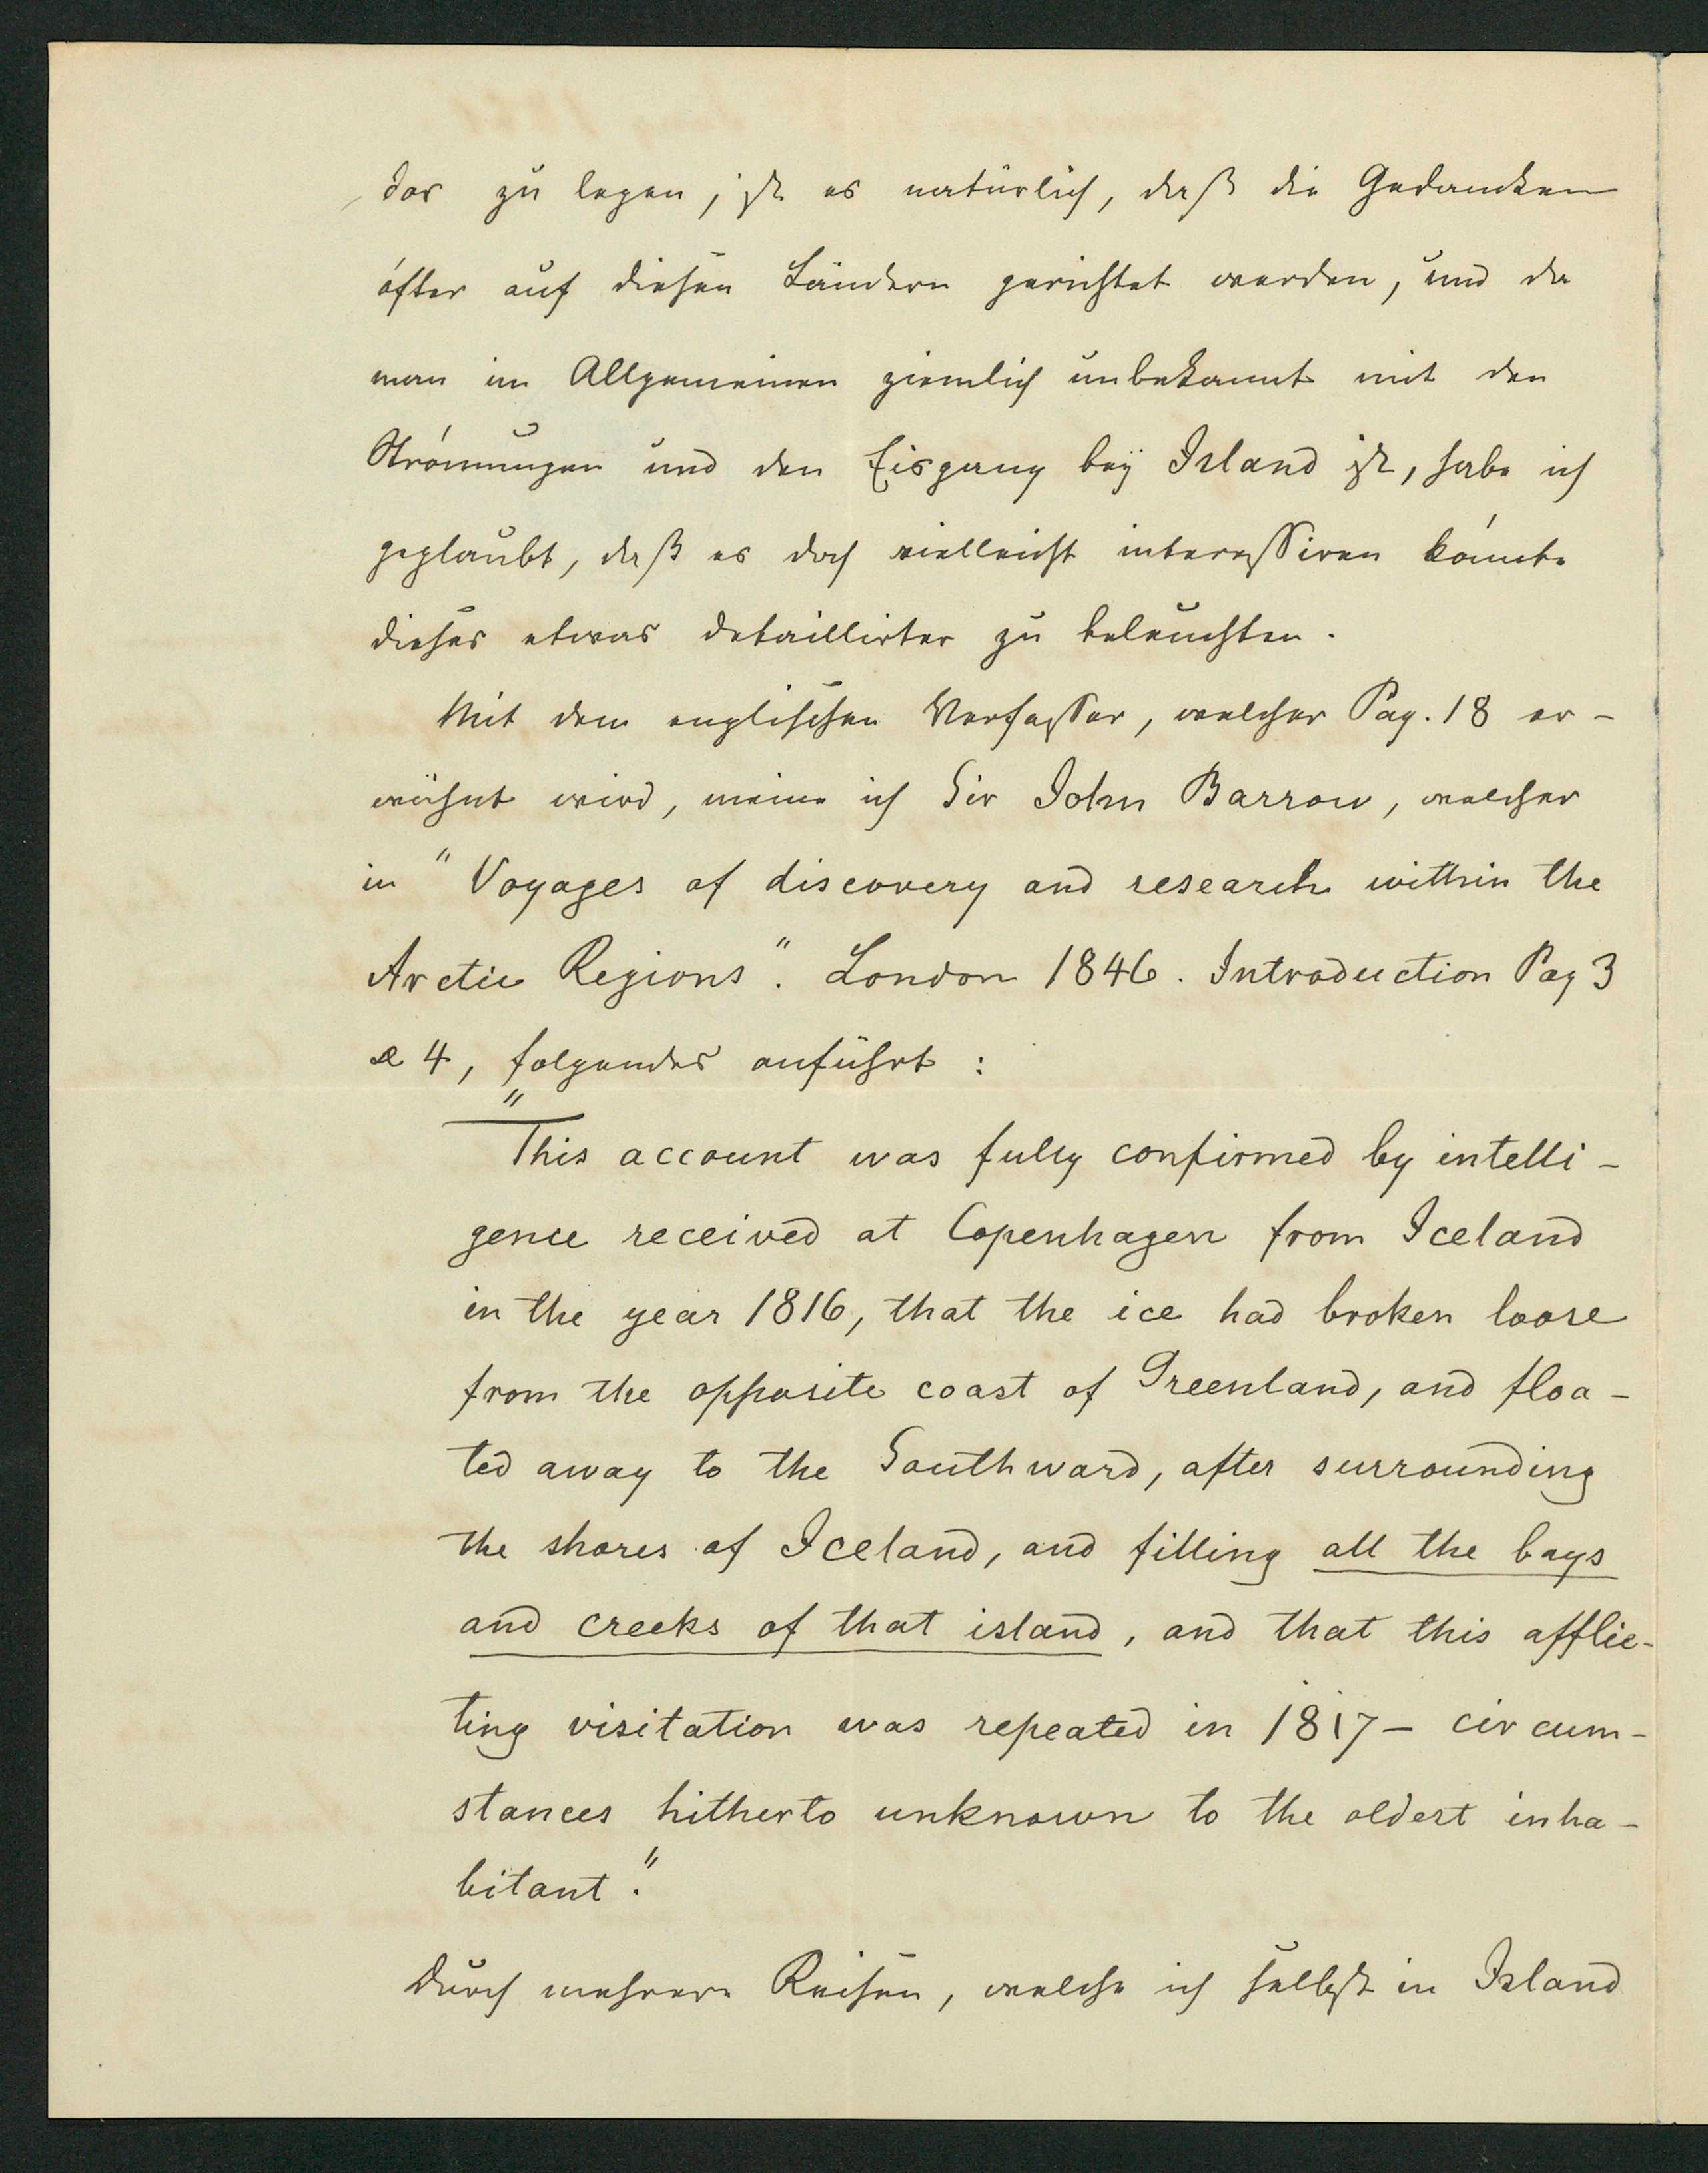 dor zu legen, ist es natürlich, daß die Gedancken
öfter auf diesen Ländern gerichtet werden, und da
man im Allgemeinen ziemlich unbekannt mit den
Strömungen und den Eisgang beÿ Island ist, habe ich
geglaubt, daß es doch vielleicht interessiren könnte
dieses etwas detaillirter zu beleuchten.
Mit dem englischen Verfasser, welcher Pag. 18 er-
wähnt wird, meine ich Sir John Barrow, welcher
in "Voyages of discovery and research within the
Arctic Regions". London 1846. Introduction Pag 3
& 4, folgendes anführt:
"This account was fully confirmed by intelli-
gence received at Copenhagen from Iceland
in the year 1816, that the ice had broken loose
from the opposite coast of Greenland, and floa-
ted away to the Southward, after surrounding
the shores of Iceland, and filling all the bays
and creeks of that island, and that this afflic-
ting visitation was repeated in 1817 - circum-
stances hitherto unknown to the oldest inha-
bitant."
Durch mehrere Reisen, welche ich selbst in Island